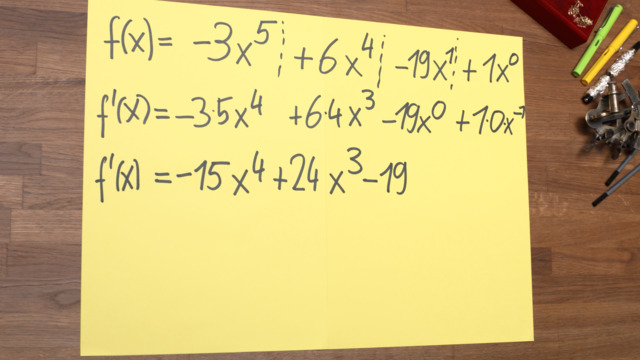 f(x) = -3x⁵ + 6x⁴ - 19x¹ + 1x⁰
f'(x) = -3·5x⁴ + 6·4x³ - 19x⁰ + 1·0·x⁻¹
f'(x) = -15x⁴ + 24x³ - 19